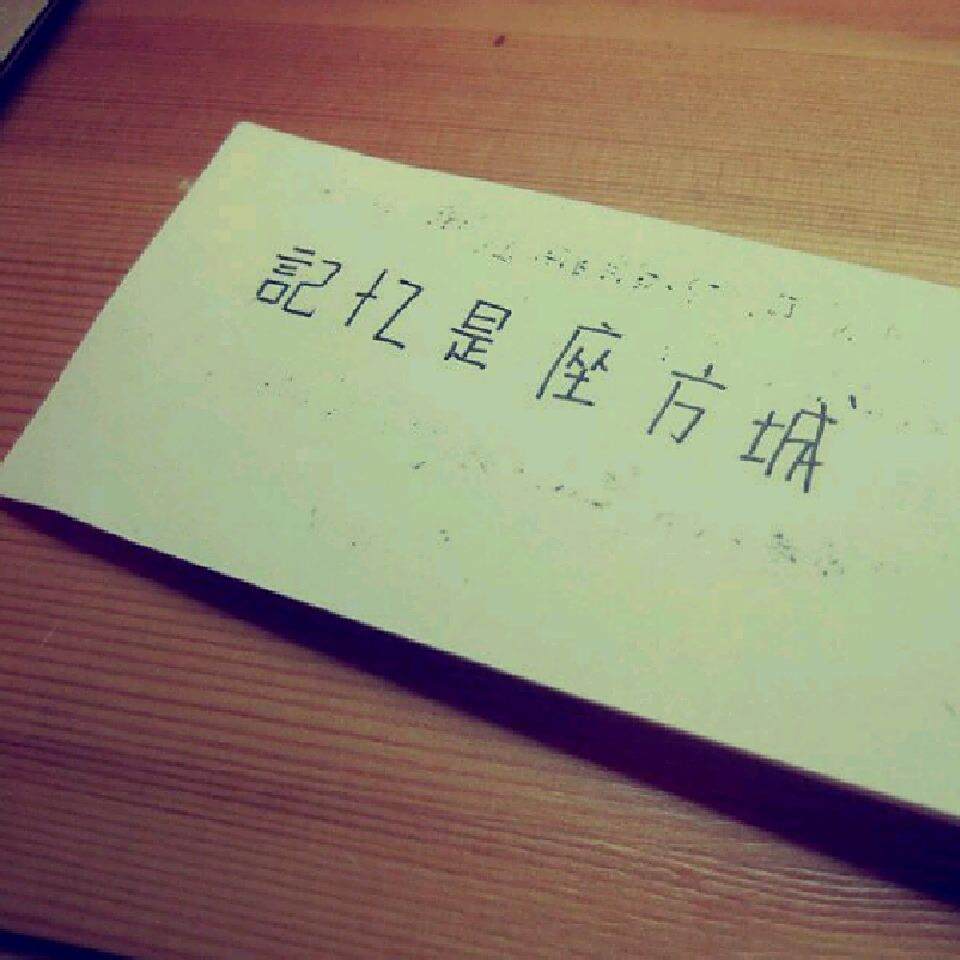 記忆是座方城